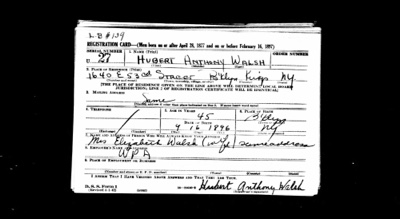 L.B #139
REGISTRATION CARD—(Men born on or after April 28, 1877 and on or before February 16, 1897)
SERIAL NUMBER 1. NAME (Print) ORDER NUMBER
U 27 HUBERT ANTHONY WALSH
2. PLACE OF RESIDENCE (Print)
1640 E 53rd Street B'klyn Kings NY
[THE PLACE OF RESIDENCE GIVEN ON THE LINE ABOVE WILL DETERMINE LOCAL BOARD
JURISDICTION; LINE 2 OF REGISTRATION CERTIFICATE WILL BE IDENTICAL]
3. MAILING ADDRESS
Same
4. TELEPHONE 5. AGE IN YEARS 6. PLACE OF BIRTH
45 B'klyn
DATE OF BIRTH
9 16 1896 NY
7. NAME AND ADDRESS OF PERSON WHO WILL ALWAYS KNOW YOUR ADDRESS
Mrs Elizabeth Walsh (wife) same address
8. EMPLOYER'S NAME AND ADDRESS
WPA
9. PLACE OF EMPLOYMENT OR BUSINESS
I AFFIRM THAT I HAVE VERIFIED ABOVE ANSWERS AND THAT THEY ARE TRUE.
D. S. S. Form 1
Hubert Anthony Walsh